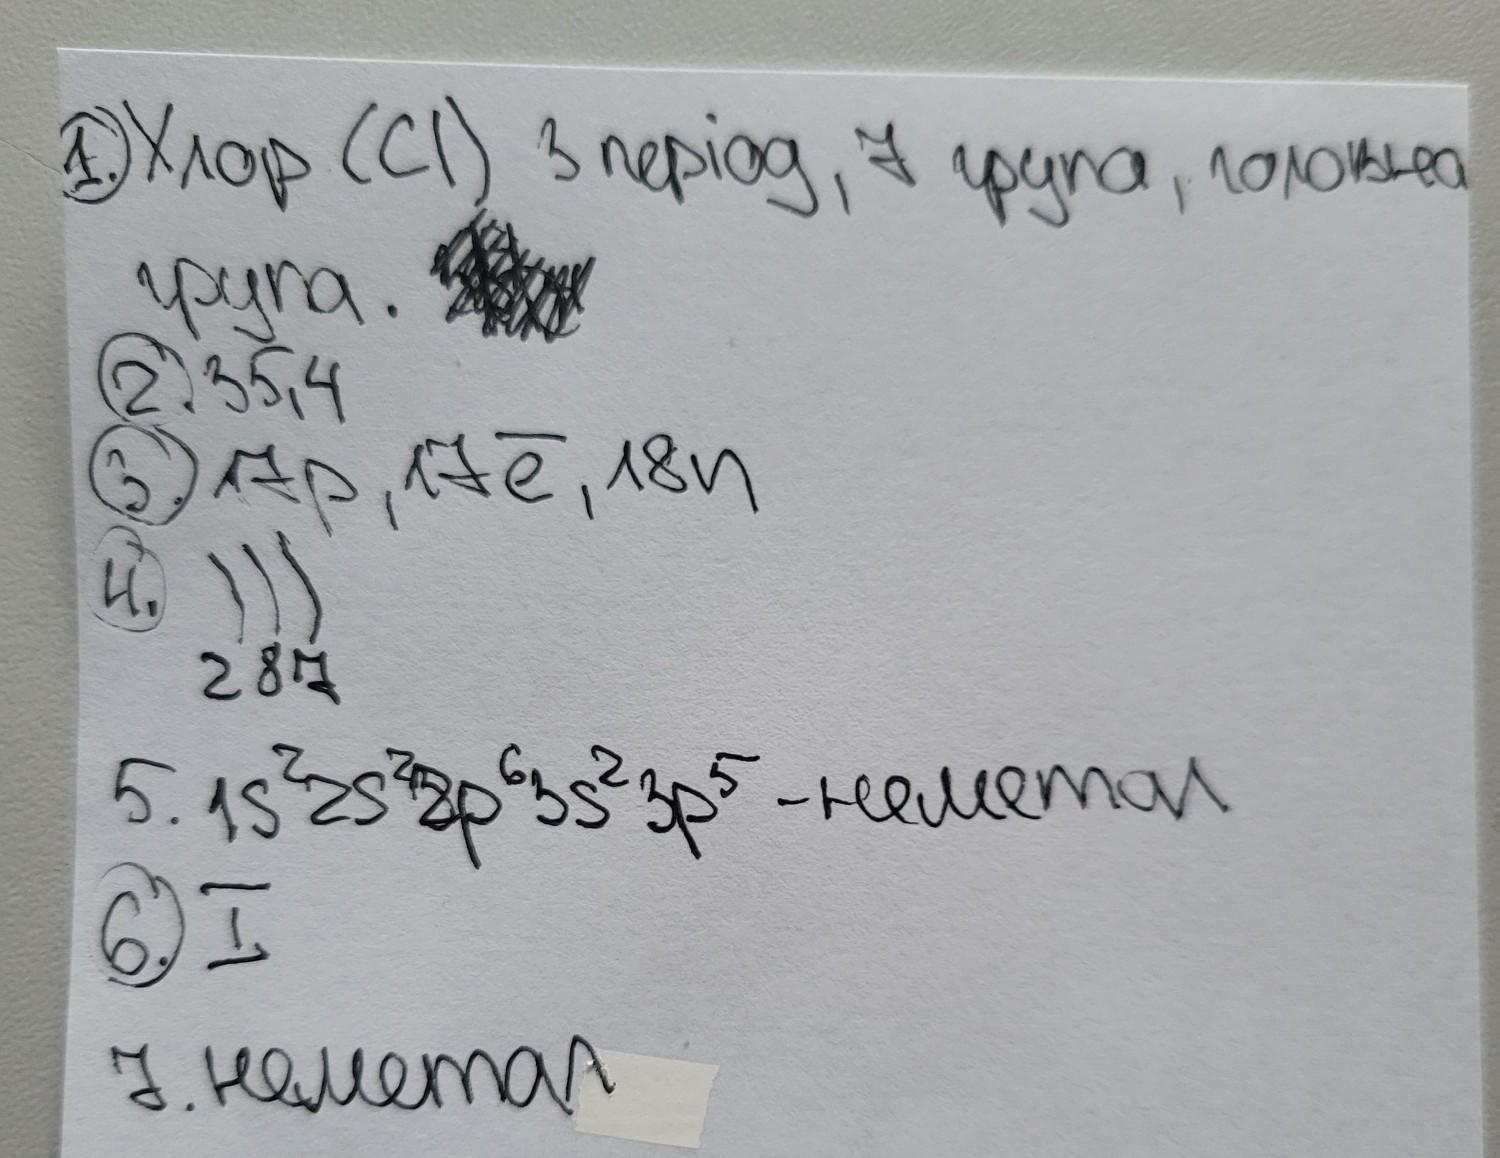 1. Хлор (Cl) 3 період, 7 група, головна
група.
2. 35,4
3. 17p, 17e̅, 18n
4. )))
2 8 7
5. 1s²2s²2p⁶3s²3p⁵ - неметал
6. I
7. неметал